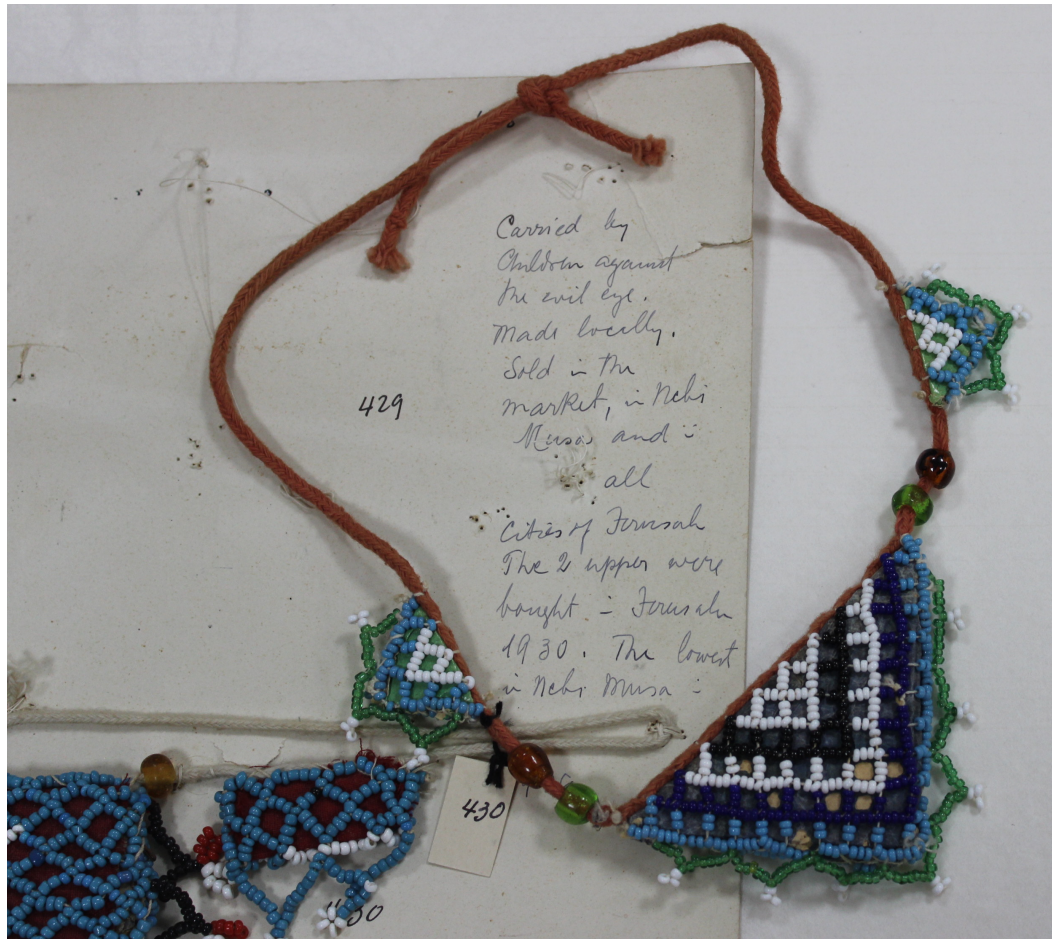 Carried by
Children against
the evil eye.
Made locally.
Sold in the
market, in Nebi
Musa and in
all
Cities of Jerusalem
The 2 upper were
bought in Jerusalem
1930. The lowest
in Nebi Musa
429
430